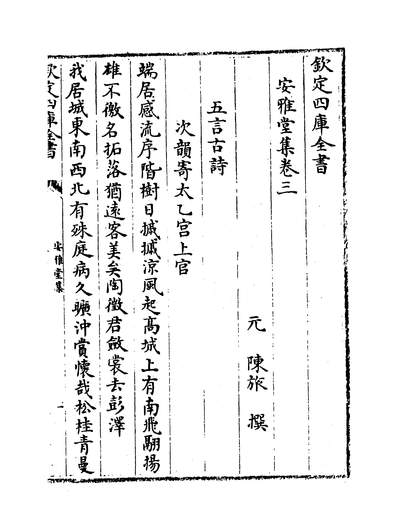 欽定四庫全書
安雅堂集卷三
元 陳旅 撰
五言古詩
次韻寄太乙宫上官
端居感流序階樹日摵摵涼風起髙城上有南飛翮揚
雄不徼名拓落猶逺客美矣陶徵君斂裳去彭澤
我居城東南西北有殊庭病久曠沖賞懷哉松桂青曼
欽定四庫全書
安雅堂集
一